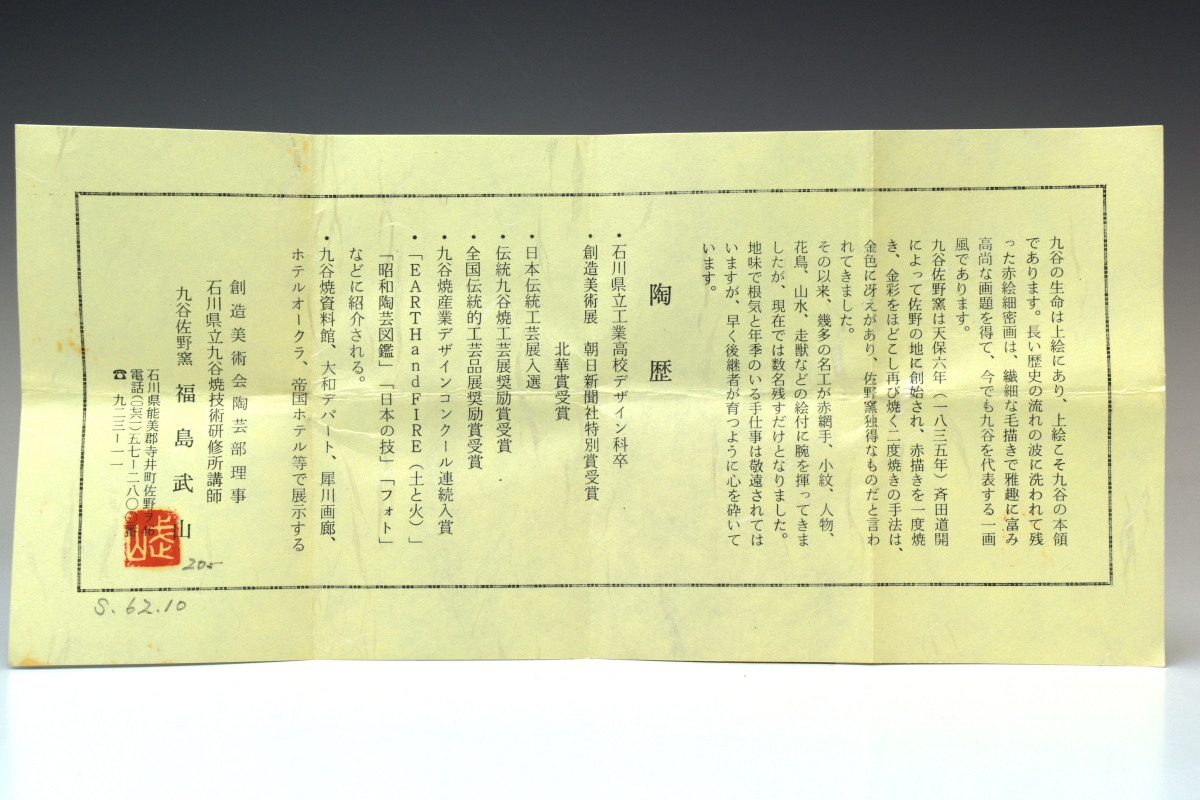 九谷の生命は上絵にあり、上絵こそ九谷の本領
であります。長い歴史の流れの波に洗われて残
った赤絵細密画は、繊細な毛描きで雅趣に富み
高尚な画題を得て、今でも九谷を代表する一画
風であります。
九谷佐野窯は天保六年(一八三五年)斉田道開
によって佐野の地に創始され、赤描きを一度焼
き、金彩をほどこし再び焼く二度焼きの手法は、
金色に冴えがあり、佐野窯独得なものだと言わ
れてきました。
その以来、幾多の名工が赤網手、小紋、人物、
花鳥、山水、走獣などの絵付に腕を揮ってきま
したが、現在では数名残すだけとなりました。
地味で根気と年季のいる手仕事は敬遠されては
いますが、早く後継者が育つように心を砕いて
います。
陶歴
•石川県立工業高校デザイン科卒
•創造美術展 朝日新聞社特別賞受賞
北華賞受賞
•日本伝統工芸展入選
•伝統九谷焼工芸展奨励賞受賞
•全国伝統的工芸品展奨励賞受賞
•九谷焼産業デザインコンクール連続入賞
•「EARTHandFIRE(土と火)」
「昭和陶芸図鑑」「日本の技」「フォト」
などに紹介される。
•九谷焼資料館、大和デパート、犀川画廊、
ホテルオークラ、帝国ホテル等で展示する
創造美術会陶芸部理事
石川県立九谷焼技術研修所講師
九谷佐野窯 福島武山
石川県能美郡寺井町佐野ヲ
電話(〇七六一)五七ー二八〇〇番
☎ 九二三ー一一
205
S.62.10